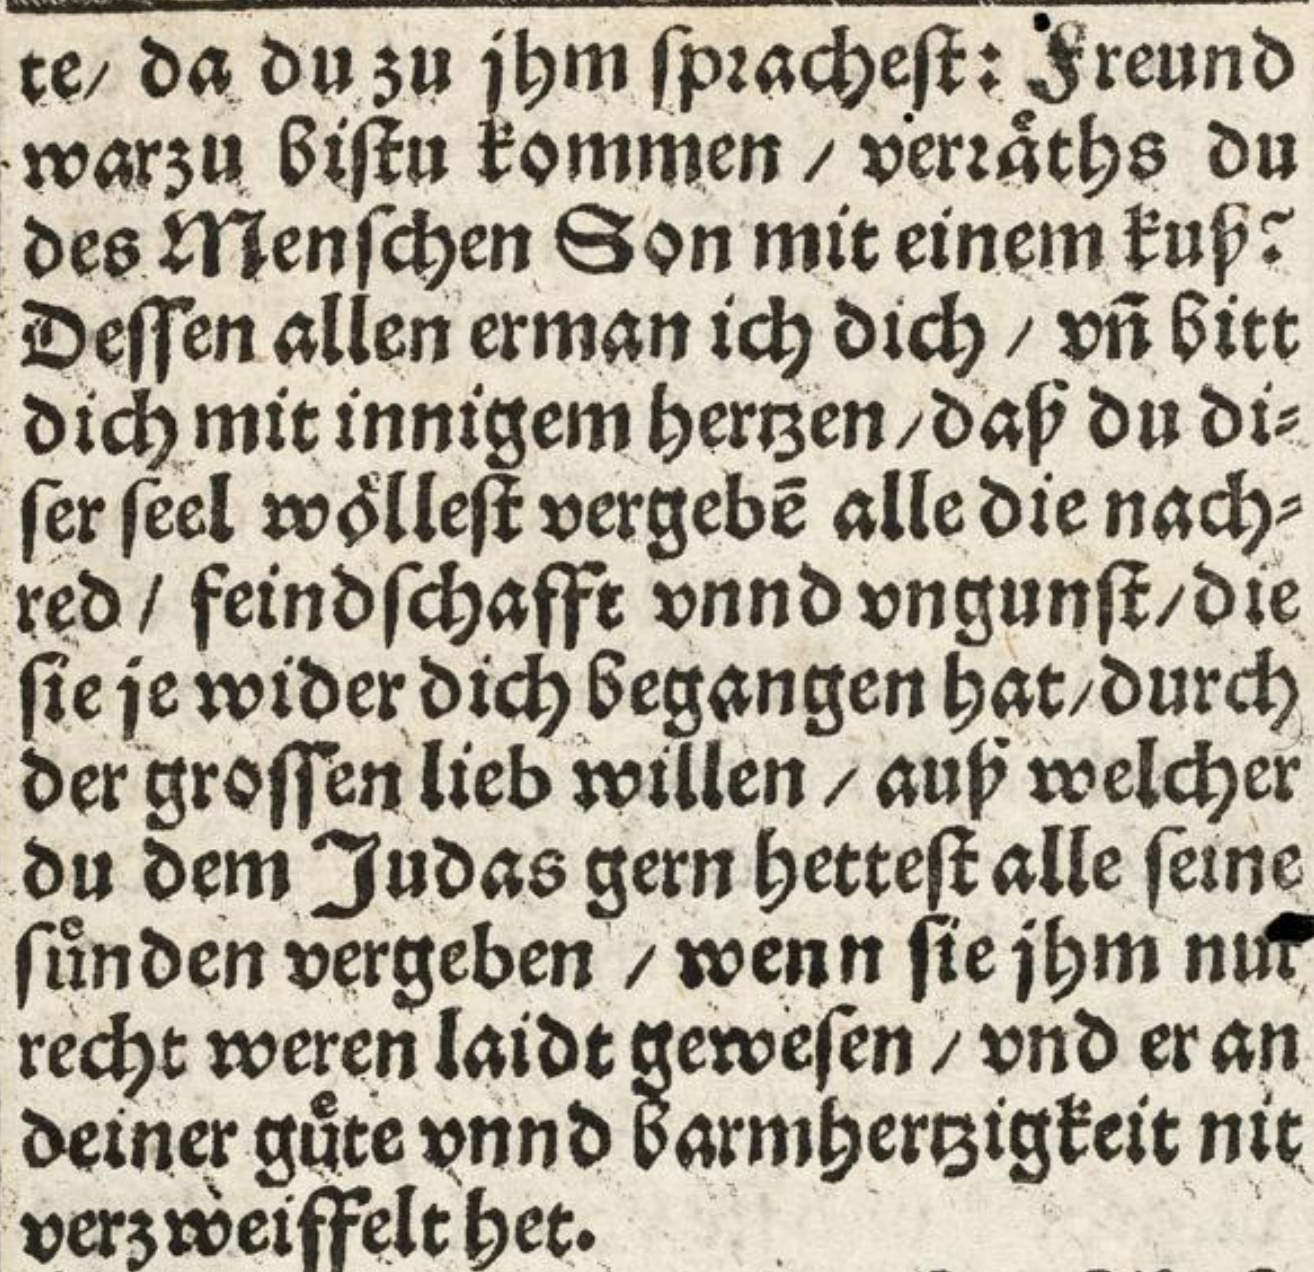 te/ da du zu jhm ſpꝛacheſt: Freund
warzu biſtu kommen / verꝛaͤths du
des Menſchen Son mit einem kuß?
Deſſen allen erman ich dich / vñ bitt
dich mit innigem hertzen / daß du di⸗
ſer ſeel woͤlleſt vergebē alle die nach⸗
red / feindſchafft vnnd vngunſt / die
ſie je wider dich begangen hat / durch
der groſſen lieb willen / auß welcher
du dem Judas gern hetteſt alle ſeine
ſuͤnden vergeben / wenn ſie jhm nur
recht weren laidt geweſen / vnd er an
deiner guͤte vnnd barmhertzigkeit nit
verzweiffelt het.